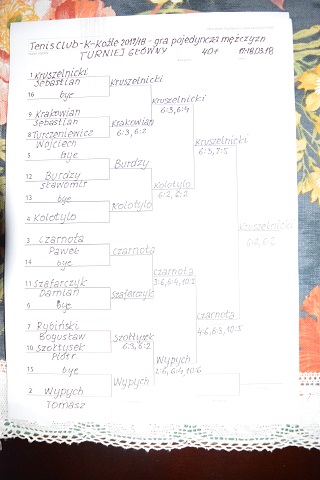 Tenis Club-K-Koźle 2017/18 - gra pojedyncza mężczyzn
TURNIEJ GŁÓWNY 40+ 17-18.03.18
1 Kruszelnicki
Sebastian
16 bye
9 Krakowian
Sebastian
8 Turczeniewicz
Wojciech
5 bye
12 Burdzy
Sławomir
13 bye
4 Kolotylo
3 Czarnota
Paweł
14 bye
11 Szafarczyk
Damian
6 bye
7 Rybiński
Bogusław
10 Szołtysek
Piotr
15 bye
2 Wypych
Tomasz
Kruszelnicki
Krakowian
6:3, 6:2
Burdzy
Kolotylo
Czarnota
Szafarczyk
Szołtysek
6:3, 6:2
Wypych
Kruszelnicki
6:3, 6:4
Kolotylo
6:2, 6:2
Czarnota
3:6, 6:4, 10:2
Wypych
2:6, 6:4, 10:6
Kruszelnicki
6:3, 7:5
Czarnota
4:6, 6:3, 10:5
Kruszelnicki